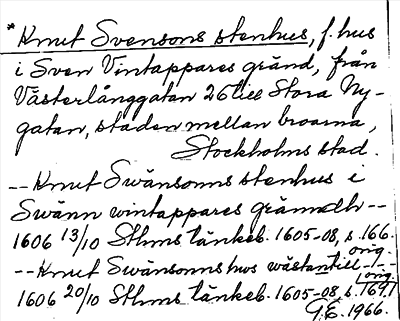 *Knut Svensons stenhus, f. hus
i Sven Vintappares gränd, från
Västerlånggatan 26 till Stora Ny-
gatan, staden mellan broarna,
Stockholms stad.
--Knut Swänsonns stenhus i
Swänn wintappares grämdh--
1606 13/10 Sthms tänkeb. 1605-08, s. 166.
orig.
--Knut Swänsonns hus wästantill--
orig.
1606 20/10 Sthms tänkeb. 1605-08, s. 169.
G.E. 1966.